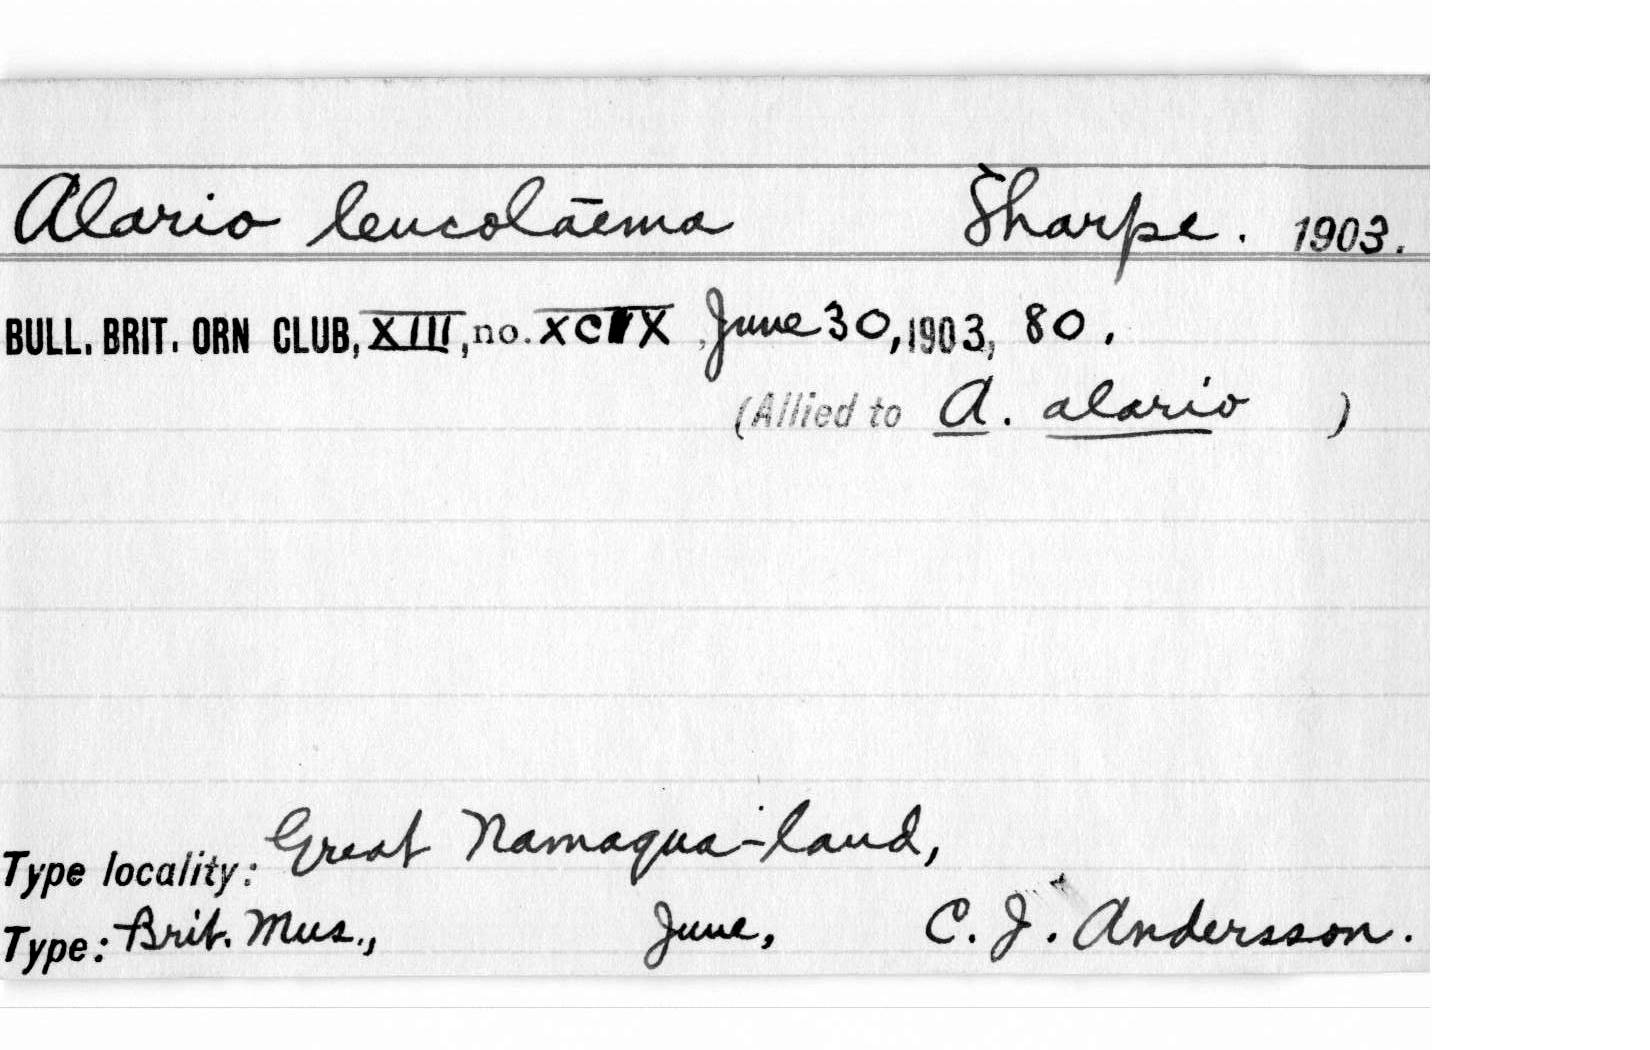 Alario leucolāema Sharpe. 1903.
BULL. BRIT. ORN CLUB, XIII, no. XCIX, June 30, 1903, 80.
(Allied to A. alario )
Type locality: Great Namaqua-land,
Type: Brit. Mus., June, C. J. Andersson.